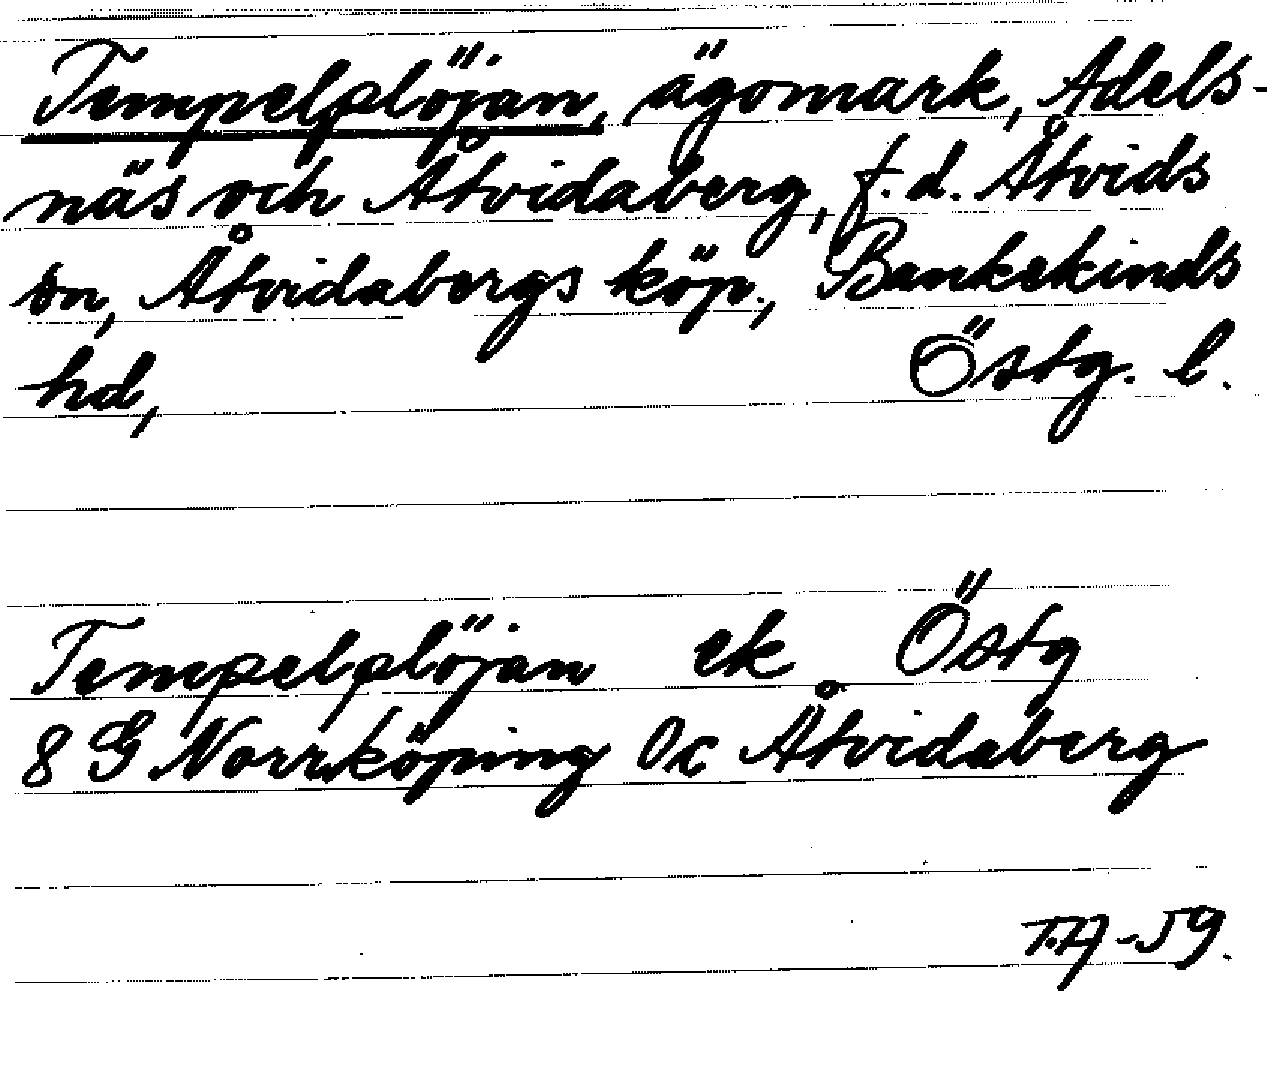 Tempelplöjan, ägomark, Adels-
näs och Åtvidaberg, f.d. Åtvids
sn, Åtvidabergs köp., Bankekinds
hd, Östg. l.
Tempelplöjan ek Östg
8 G Norrköping 0c Åtvidaberg
T.A -59.